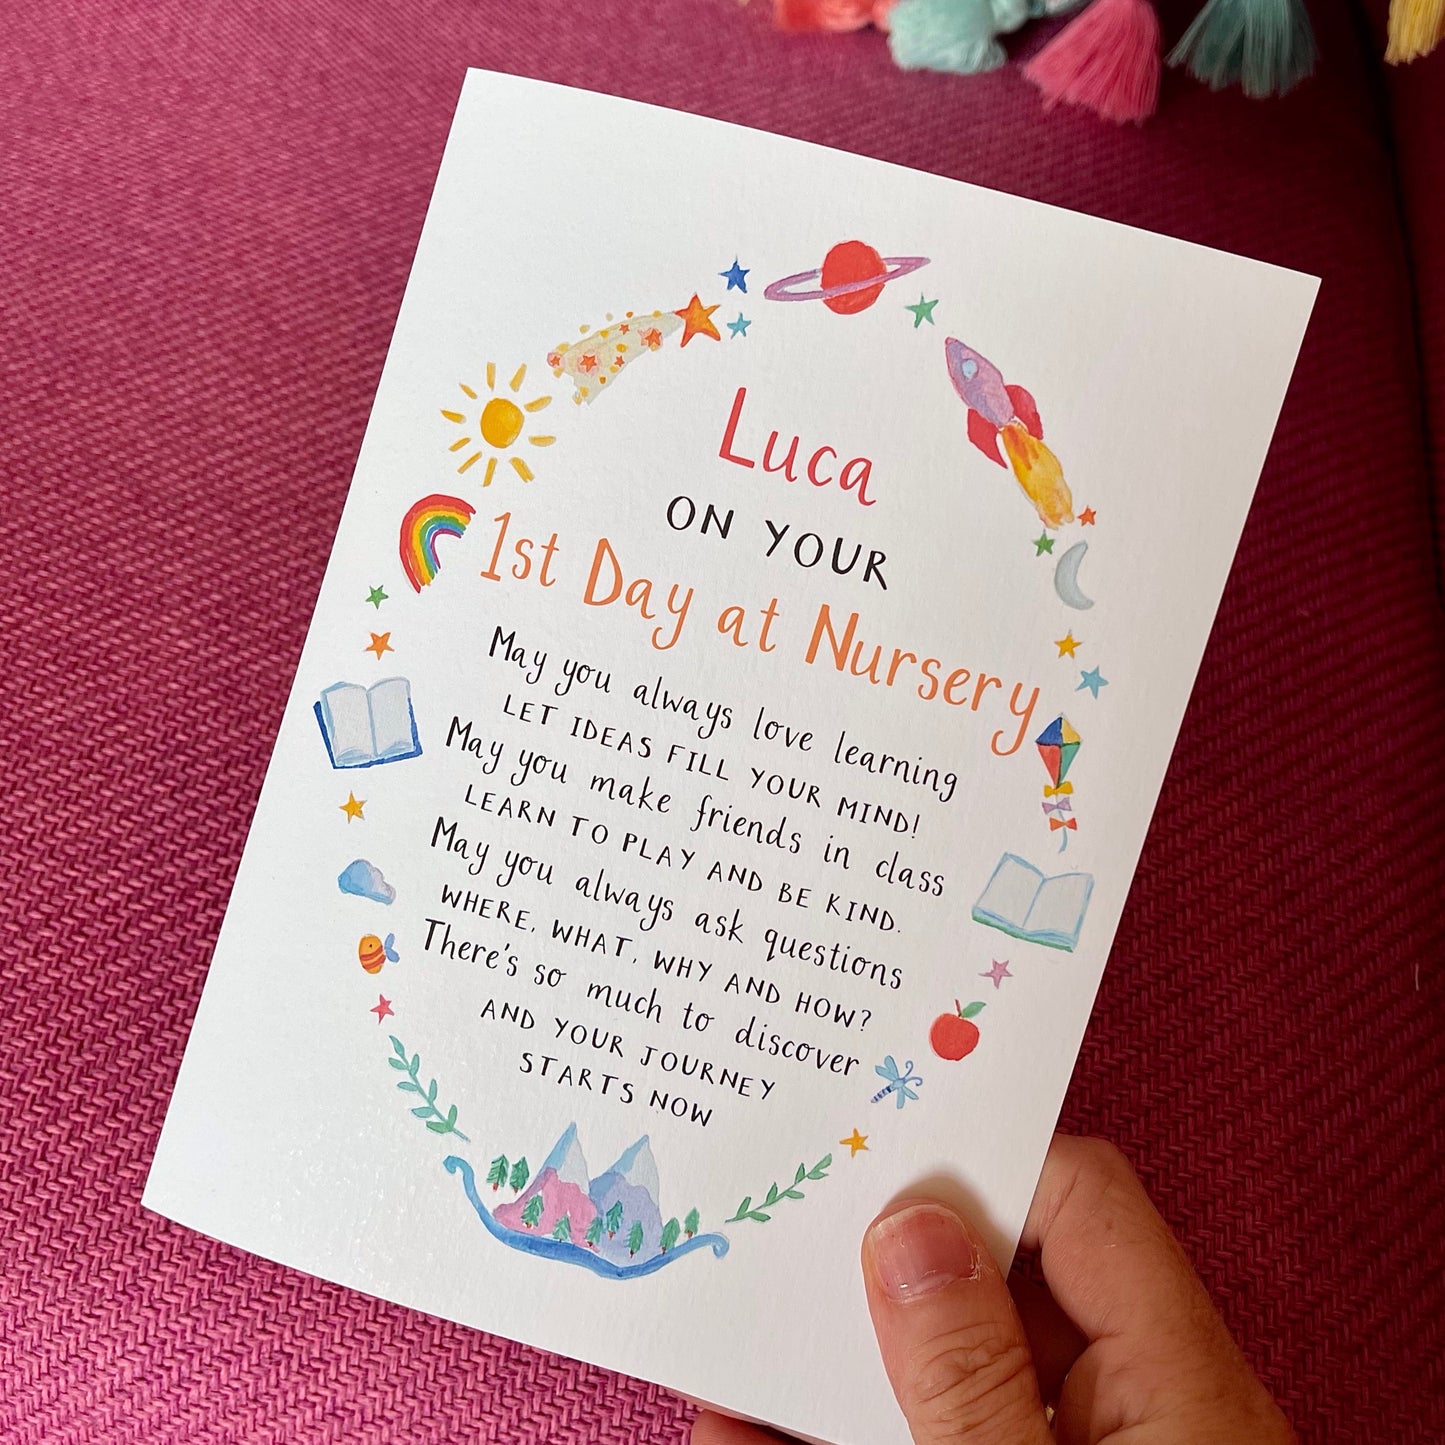 Luca
ON YOUR
1st Day at Nursery
May you always love learning
LET IDEAS FILL YOUR MIND!
May you make friends in class
LEARN TO PLAY AND BE KIND.
May you always ask questions
WHERE, WHAT, WHY AND HOW?
There's so much to discover
AND YOUR JOURNEY
STARTS NOW